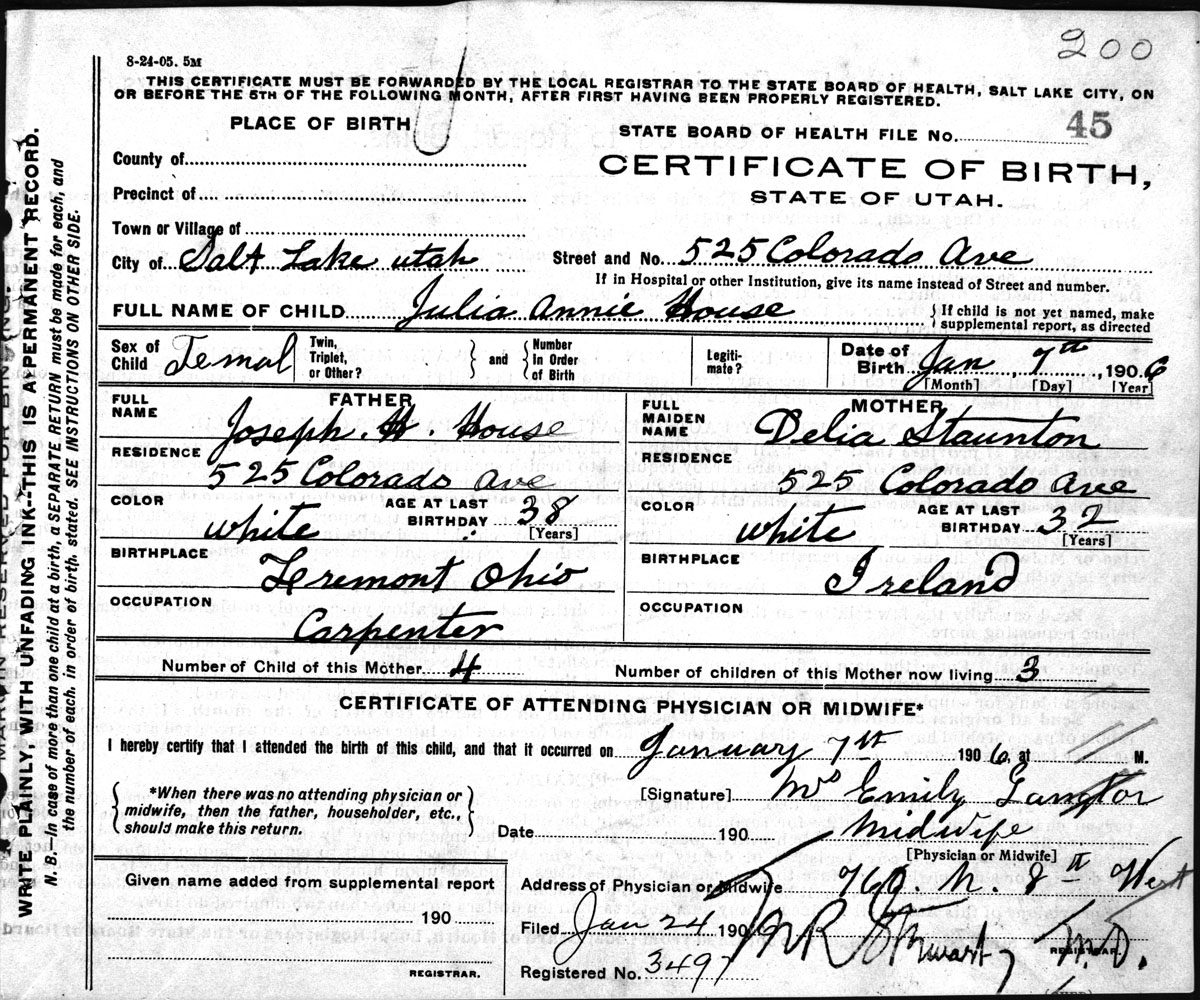 200
8-24-05. 5M
THIS CERTIFICATE MUST BE FORWARDED BY THE LOCAL REGISTRAR TO THE STATE BOARD OF HEALTH, SALT LAKE CITY, ON
OR BEFORE THE 5TH OF THE FOLLOWING MONTH, AFTER FIRST HAVING BEEN PROPERLY REGISTERED.
PLACE OF BIRTH
STATE BOARD OF HEALTH FILE No. 45
CERTIFICATE OF BIRTH,
STATE OF UTAH.
County of
Precinct of
Town or Village of
City of Salt Lake utah Street and No. 525 Colorado Ave
If in Hospital or other Institution, give its name instead of Street and number.
FULL NAME OF CHILD Julia Annie House
If child is not yet named, make
supplemental report, as directed
Sex of Child Femal
Twin, Triplet, or Other?
and
Number In Order of Birth
Legiti-mate?
Date of Birth Jan, 7th, 1906
[Month] [Day] [Year]
FATHER
FULL NAME
Joseph. H. House
RESIDENCE
525 Colorado Ave
COLOR
white
AGE AT LAST BIRTHDAY 38
[Years]
BIRTHPLACE
Fremont Ohio
OCCUPATION
Carpenter
MOTHER
FULL MAIDEN NAME
Delia Staunton
RESIDENCE
525 Colorado Ave
COLOR
white
AGE AT LAST BIRTHDAY 32
[Years]
BIRTHPLACE
Ireland
OCCUPATION
Number of Child of this Mother 4 Number of children of this Mother now living 3
CERTIFICATE OF ATTENDING PHYSICIAN OR MIDWIFE*
I hereby certify that I attended the birth of this child, and that it occurred on January 7th 1906, at M.
*When there was no attending physician or
midwife, then the father, householder, etc.,
should make this return.
[Signature] Mrs Emily
Date 190 Midwife
[Physician or Midwife]
Given name added from supplemental report
190
REGISTRAR.
Address of Physician or Midwife 760. N. 8th West
Filed Jan 24 190 M.D.
REGISTRAR.
Registered No. 3497
WRITE PLAINLY WITH UNFADING INK--THIS IS A PERMANENT RECORD.
N. B.--In case of more than one child at a birth, a SEPARATE RETURN must be made for each, and
the number of each, in order of birth, stated. SEE INSTRUCTIONS ON OTHER SIDE.